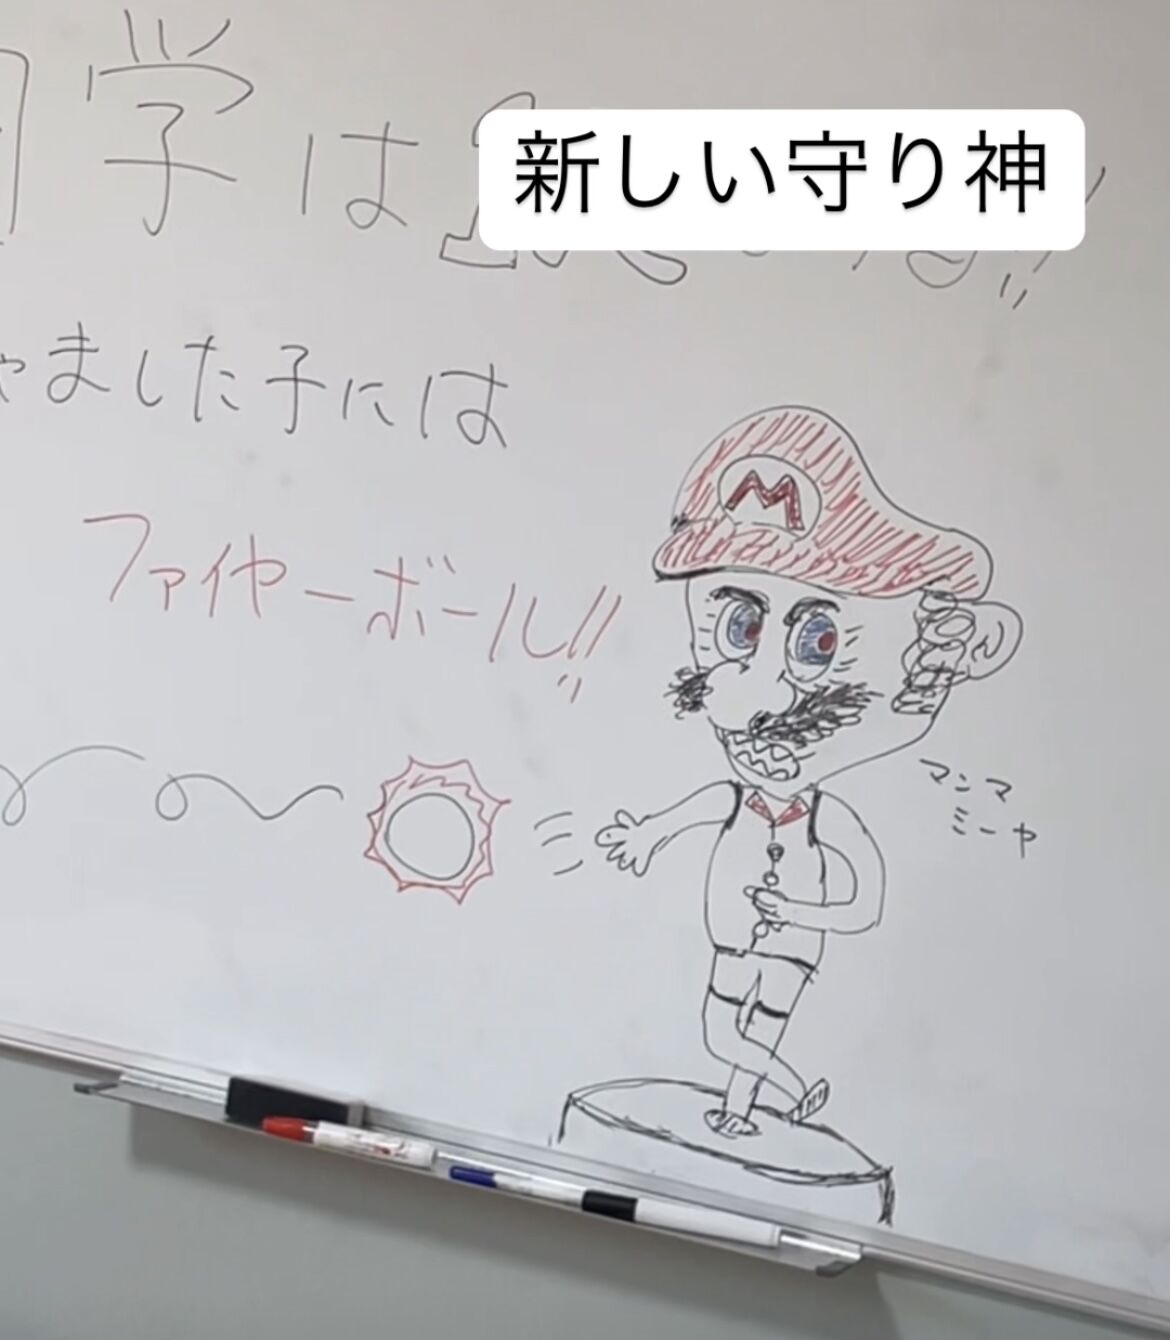 学は
新しい守り神
ました子には
ファイヤーボール!!
M
マンマ
ミーヤ